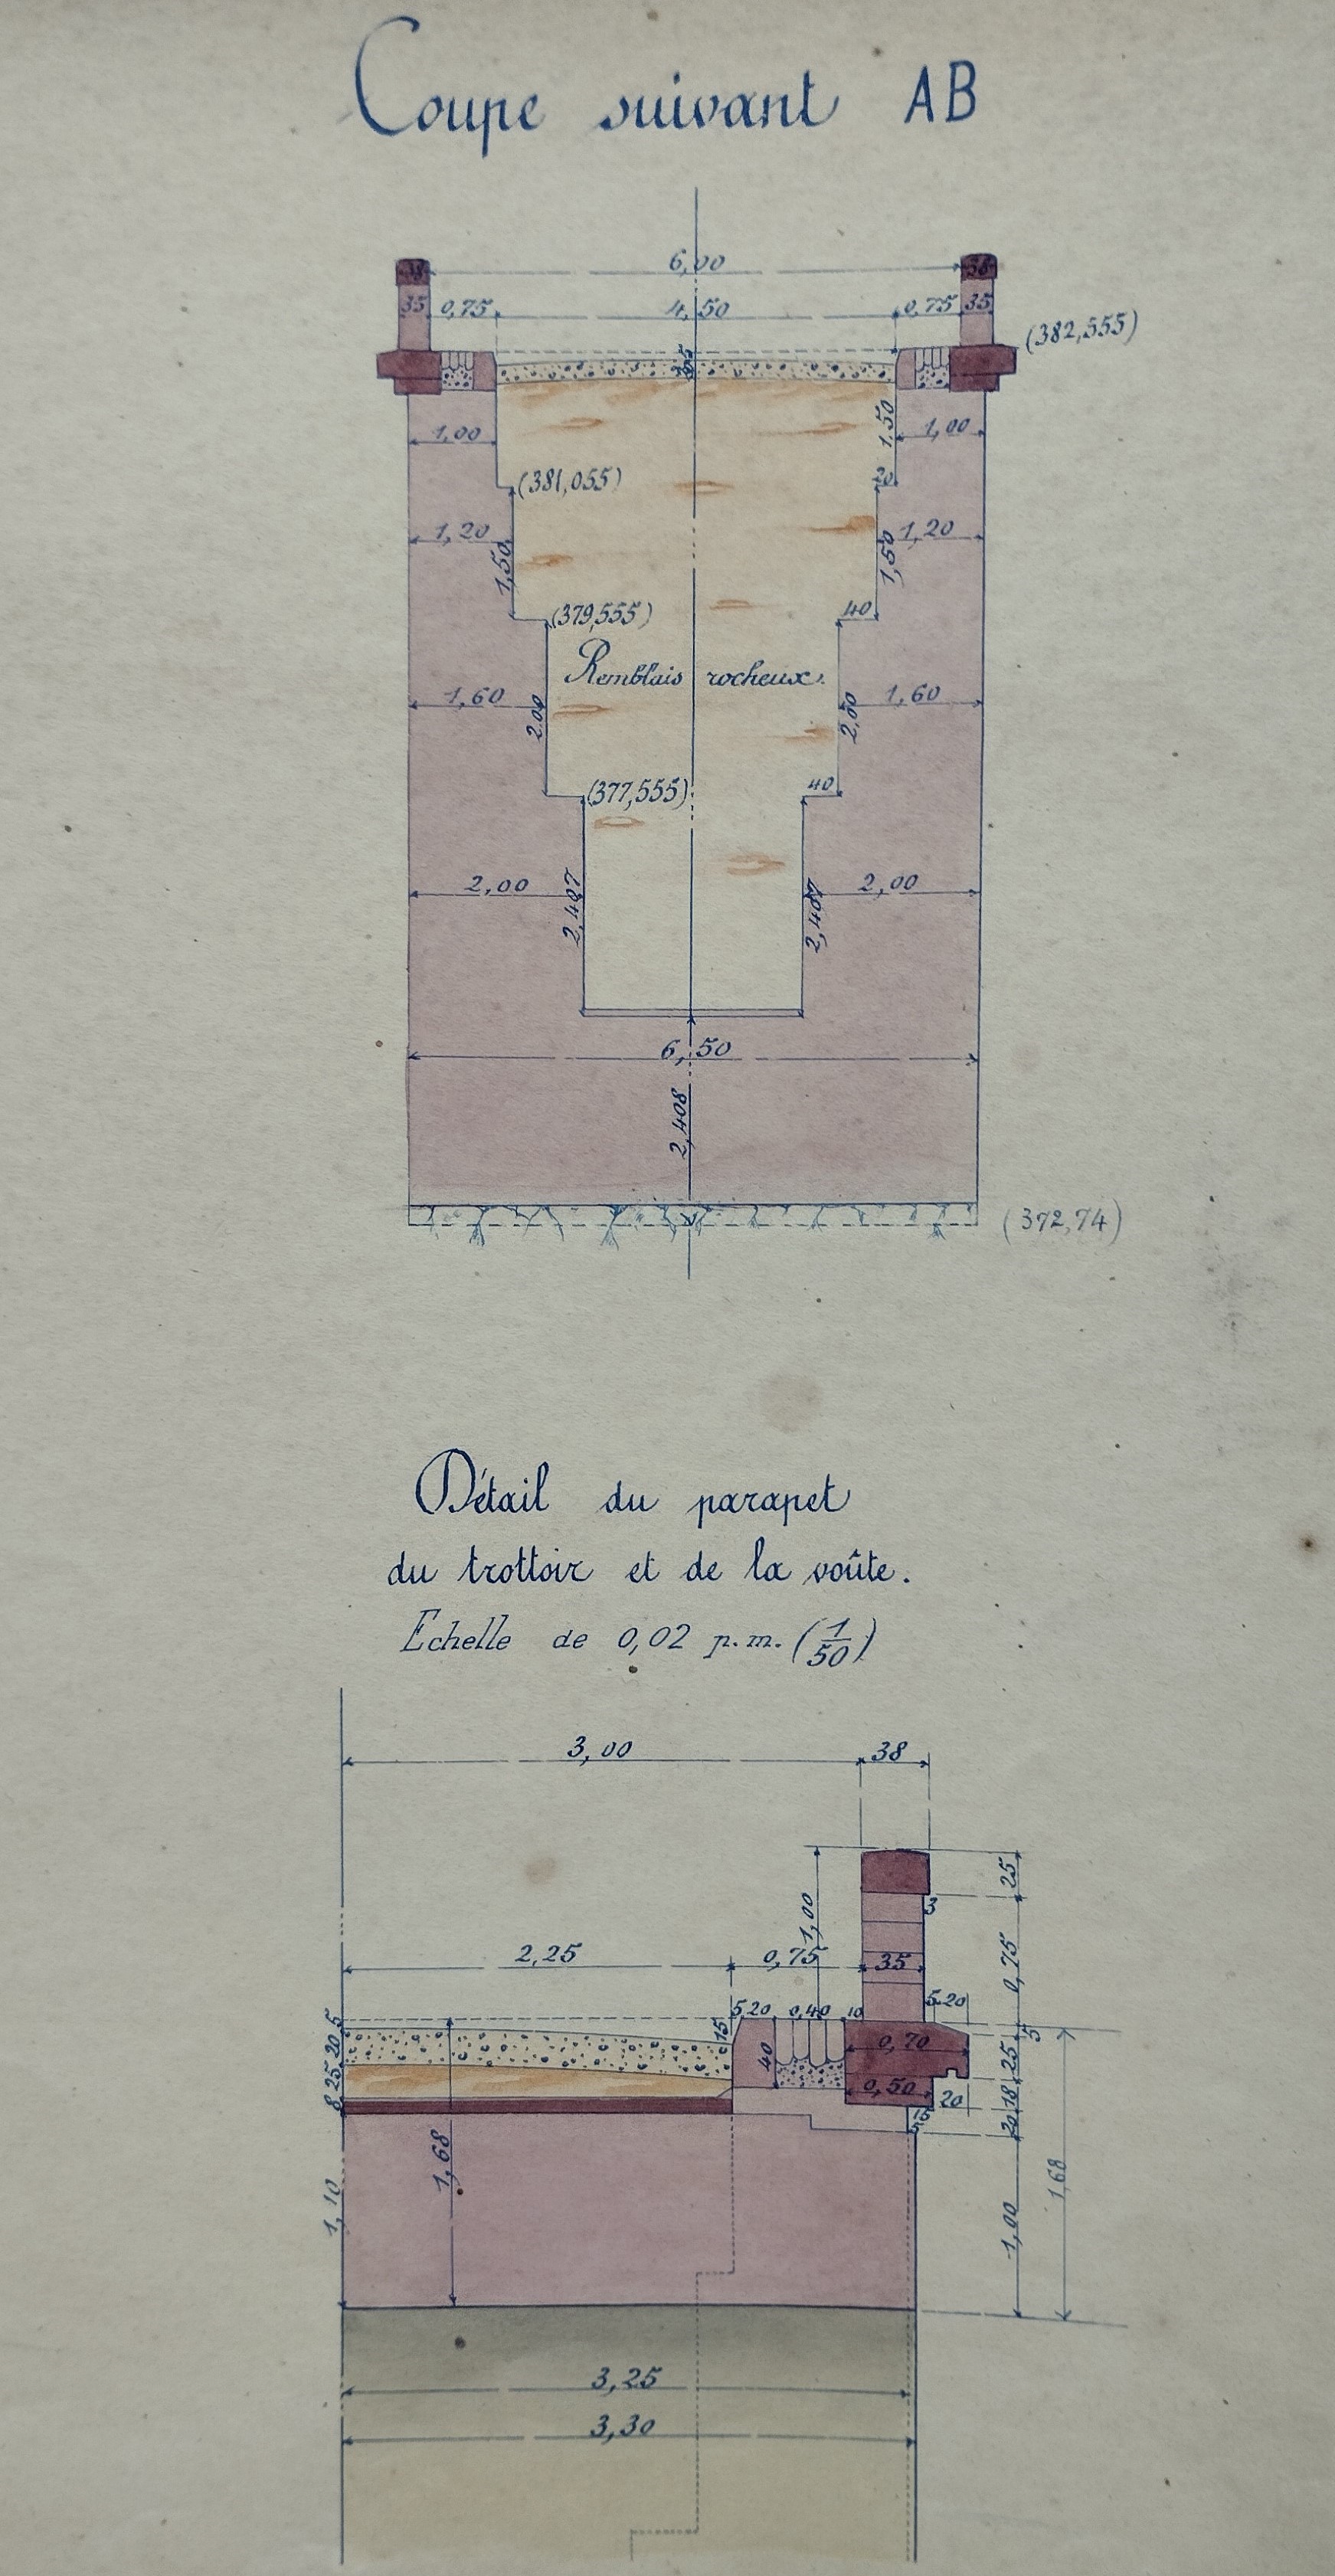 Coupe suivant AB
6,00
38 38
35 0,75 4,50 0,75 35
(382,555)
1,50
1,00 1,00
(381,055) 20
1,20 1,50 1,50 1,20
(379,555) 40
Remblais rocheux.
1,60 2,00 2,00 1,60
(377,555) 40
2,00 2,407 2,407 2,00
6,50
2,408
(372,74)
Détail du parapet
du trottoir et de la voûte.
Echelle de 0,02 p.m. (1/50)
3,00 38
25
1,00 3
2,25 0,75 35 0,75
5 20 0,40 10 5 20
5 15 5
20 40 0,70 25
25 0,50 20 18
8 15 20
5
1,68 1,68
1,10 1,00
3,25
3,30